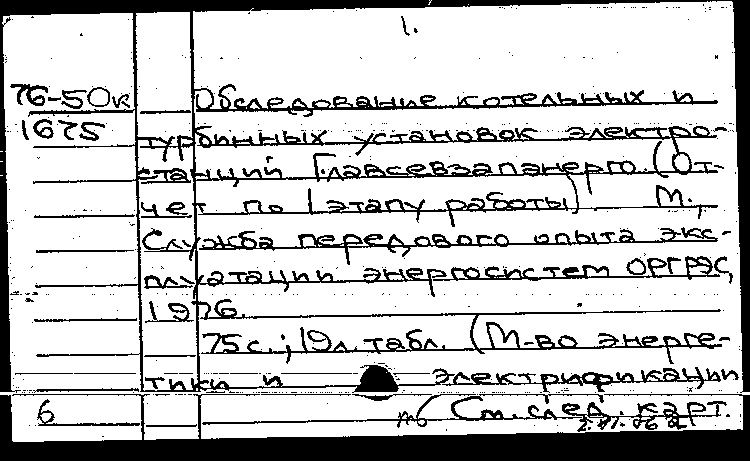 1.
76-50к Обследование котельных и
1675 турбинных установок электро-
станций Главсевзапэнерго (От-
чет по I этапу работы). М.,
Служба передового опыта экс-
плуатации энергосистем ОРГРЭС,
1976.
75 с.; 19 л. табл. (М-во энерге-
тики и электрификации
6 См. след. карт.